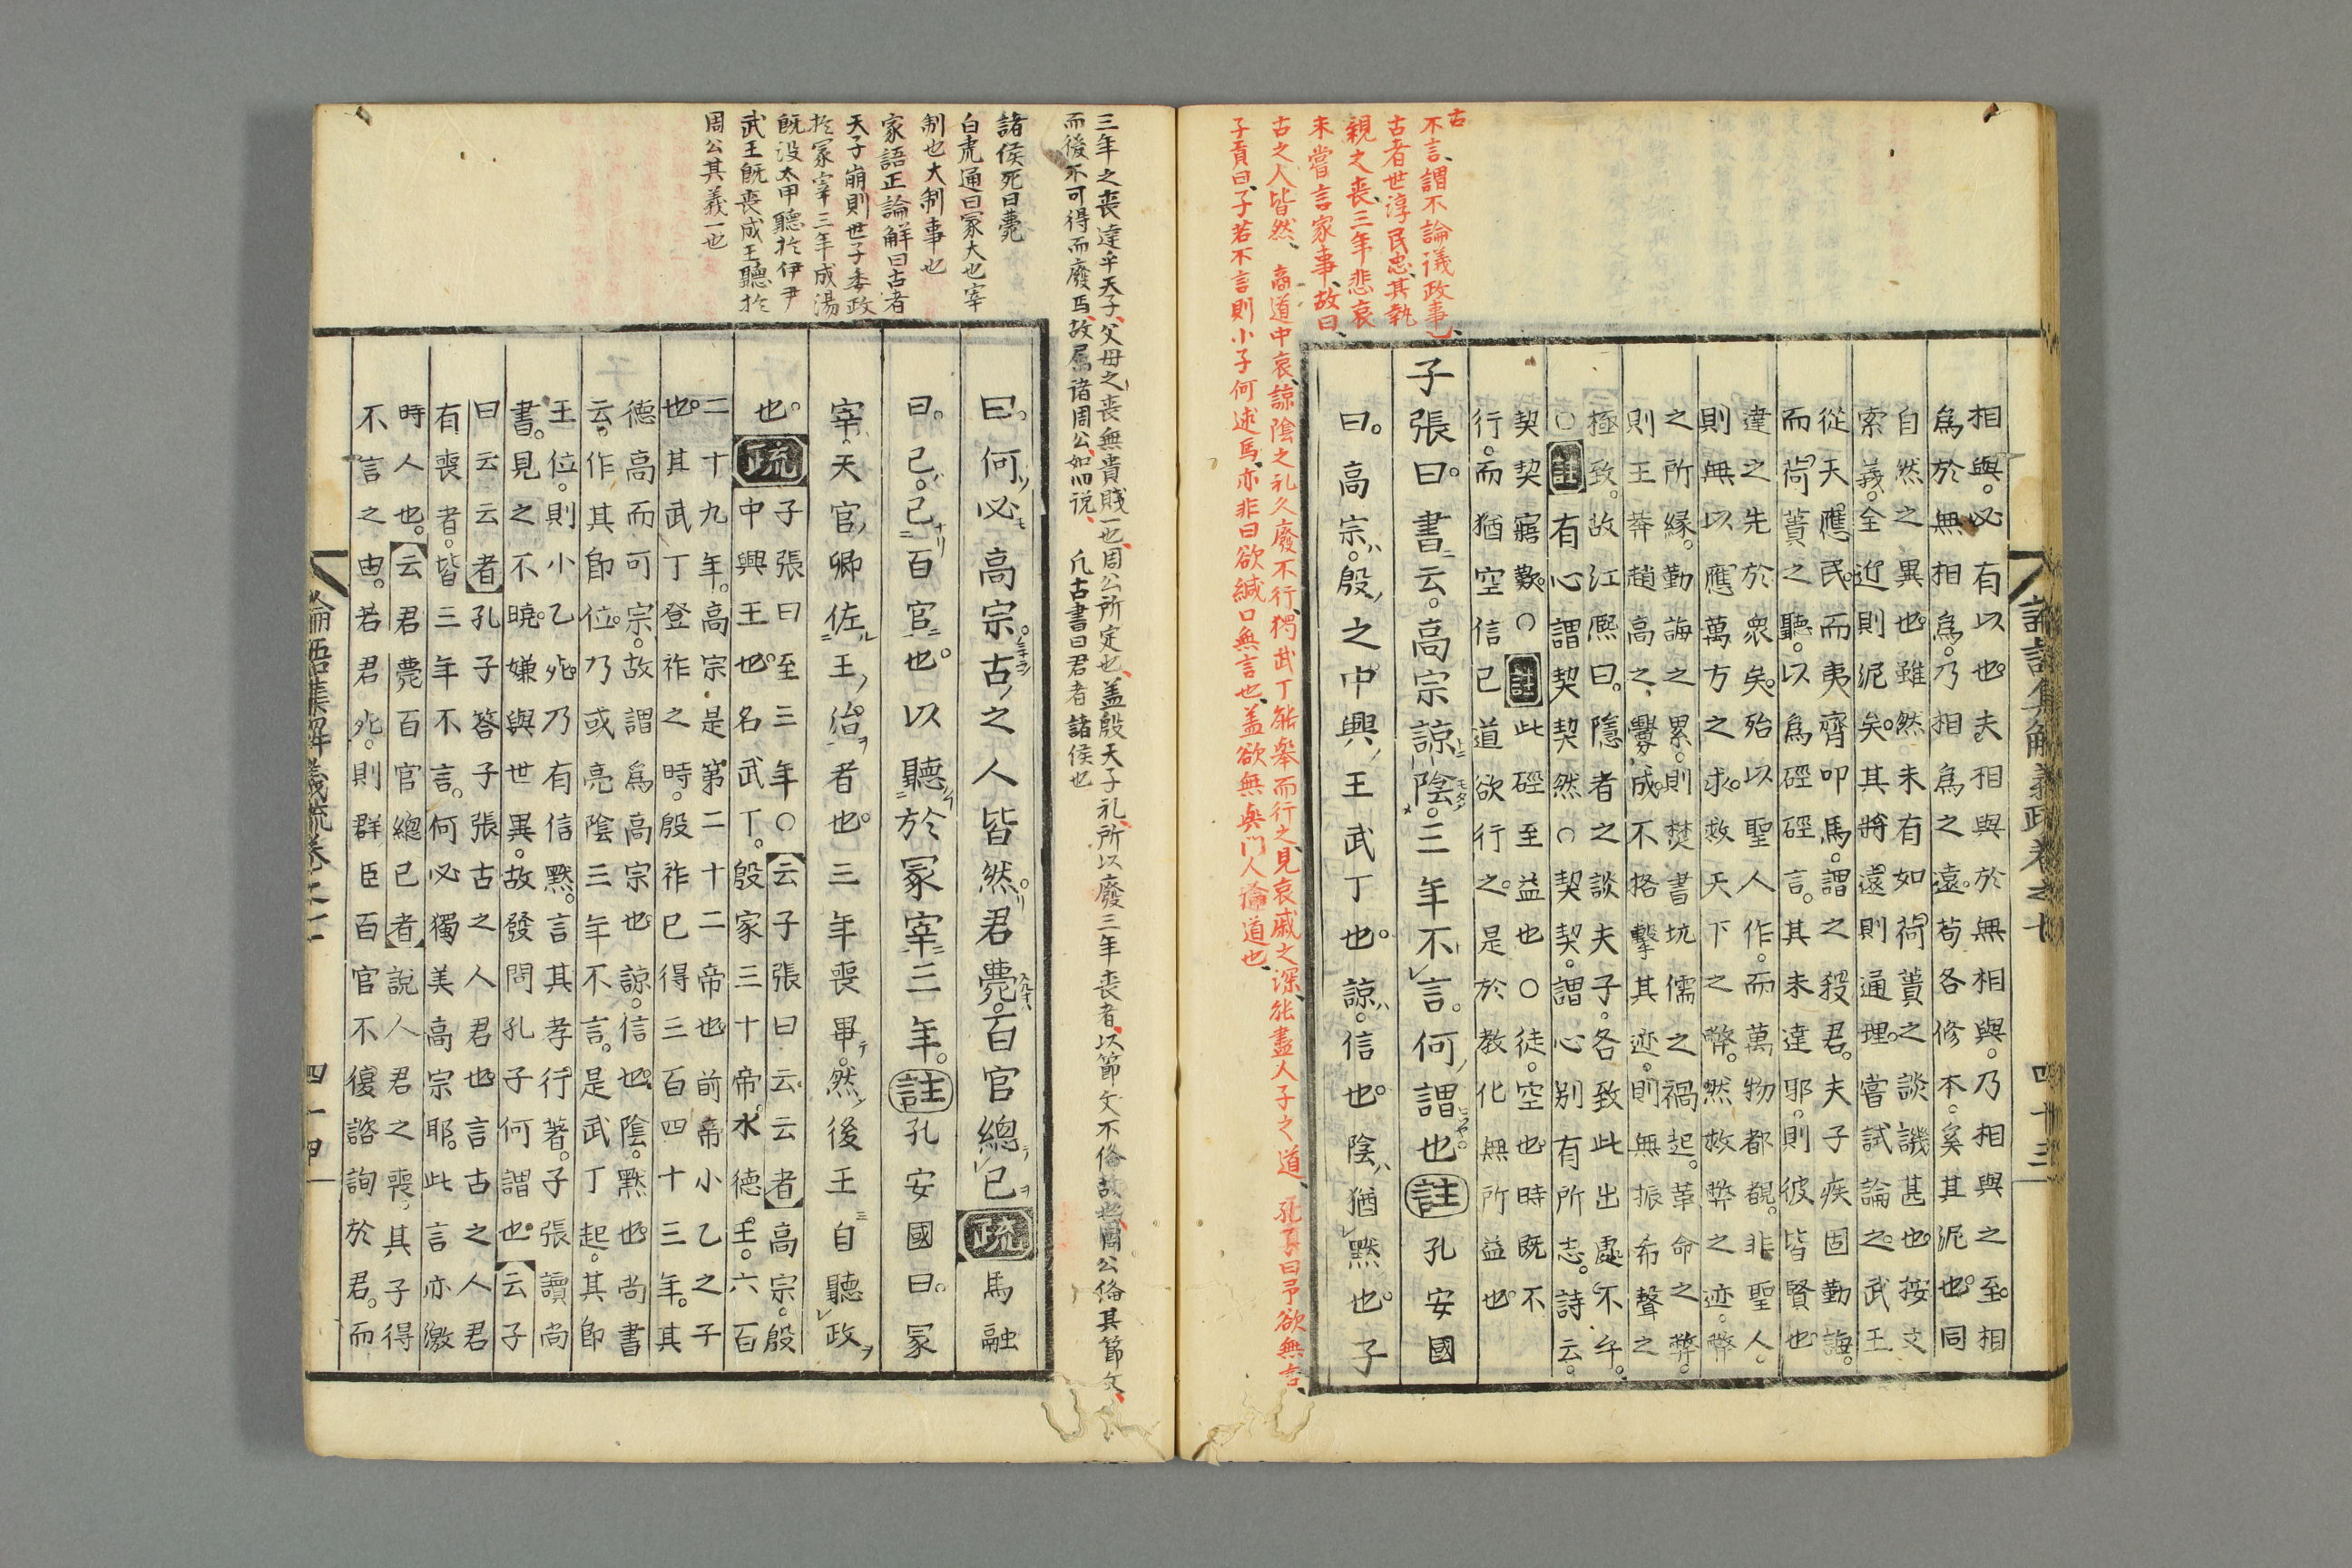 相與。必有以也。夫相與於無相與。乃相與之至。相
爲於無相爲。乃相爲之遠。苟各修本。奚其泥也。同
自然之異也。雖然。未有如荷蕢之談譏甚也。按文
索義。全近則泥矣。其將遠則通理。嘗試論之。武王
從天應民。而夷齊叩馬。謂之殺君。夫子疾固勤誨。
而荷蕢之聽。以爲硜硜言。其未達耶。則彼皆賢也
達之先於衆矣。殆以聖人作。而萬物都覩。非聖人。
則無以應萬方之求。救天下之弊。然救弊之迹。弊
之所緣。勤誨之累。則焚書坑儒之禍起。革命之弊。
則王莽趙高之釁成。不格擊其迹。則無振希聲之
極致。故江熈曰。隱者之談夫子。各致此出處不乎。
○註有心謂契契然○契契。謂心别有所志。詩云。
契契寤歎。○註此硜至益也○徒。空也時既不
行。而猶空信己道欲行之。是於教化無所益也。
子張曰。書云。高宗諒陰。三年不言。何謂也。註孔安國
曰。高宗。殷之中興王武丁也。諒。信也。陰猶默也。子
論語集解義疏卷之七 四十三
古
不言、謂不論議政事也、
古者世淳民忠、其執
親之喪、三年悲哀
未嘗言家事、故曰、
古之人皆然、 高道中哀、諒陰之礼久廢不行、獨武丁能舉而行之、見哀戚之深、能盡人子之道、 孔子曰予欲無言、
子貢曰、子若不言則小子何述焉、亦非曰欲緘口無言也、蓋欲無與門人論道也、
三年之喪達乎天子、父母之喪無貴賤一也、周公所定也、蓋殷天子礼、所以廢三年喪者、以節文不俻故也、周公俻其節文、
而後不可得而廢焉、故属诸周公、如旧说、 凡古書曰君者諸侯也
諸侯死曰薨
白虎通曰冢大也宰
制也大制事也
家語正論解曰古者
天子崩則世子委政
於冢宰三年成湯
既没太甲聽於伊尹
武王既喪成王聽於
周公其義一也
曰。何必高宗。古之人皆然。君薨。百官總己疏馬融
曰。己。己百官也。以聽於冢宰三年。註孔安國曰。冢
宰。天官卿佐王治者也。三年喪畢。然後王自聽政
也。疏子張曰至三年○云子張曰云云者高宗。殷
中興王也。名武丁。殷家三十帝。水德王。六百
二十九年。高宗是第二十二帝也前帝小乙之子
也。其武丁登祚之時。殷祚已得三百四十三年。其
德高而可宗。故謂爲高宗也。諒。信也。陰。默也。尚書
云。作其即位。乃或亮陰三年不言。是武丁起。其即
王位。則小乙死。乃有信默。言其孝行著。子張讀尚
書。見之不曉。嫌與世異。故發問孔子何謂也。云子
曰云云者孔子答子張古之人君也言古之人君
有喪者。皆三年不言。何必獨美高宗耶。此言亦激
時人也。云君薨百官總己者說人君之喪。其子得
不言之由。若君死。則群臣百官不復諮詢於君。而
論語集解義疏卷之七 四十四